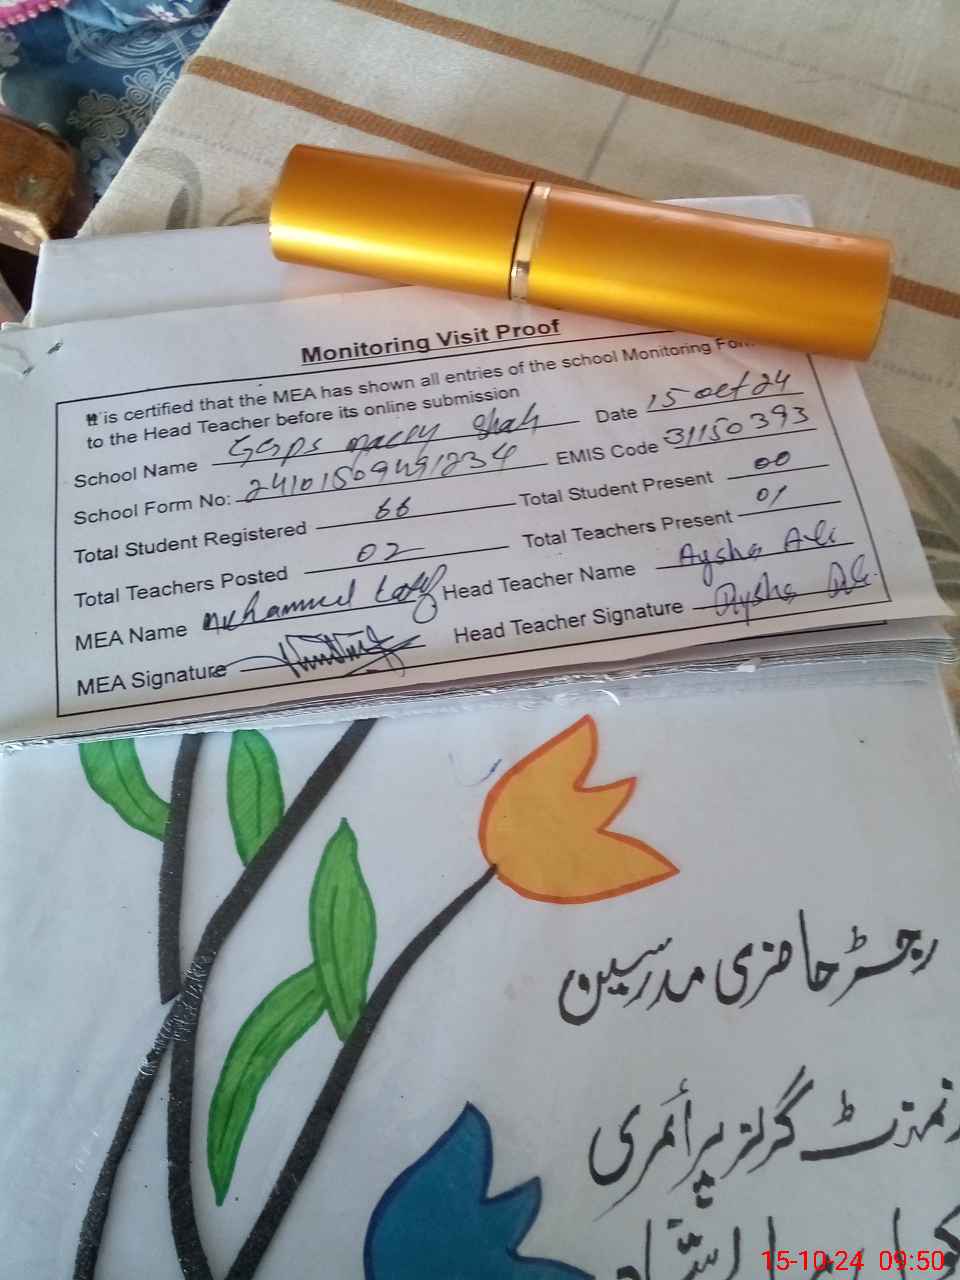 Monitoring Visit Proof
It is certified that the MEA has shown all entries of the school Monitoring For
to the Head Teacher before its online submission
School Name GGPS Shah Date 15 oct 24
School Form No: EMIS Code 31150393
Total Student Registered 66 Total Student Present 00
Total Teachers Posted 02 Total Teachers Present 01
MEA Name Muhammad Head Teacher Name Aysha Ali
MEA Signature Head Teacher Signature Aysha Ali
رجسٹر حاضری مدرسین
گرلز پرائمری
15-10-24 09:50